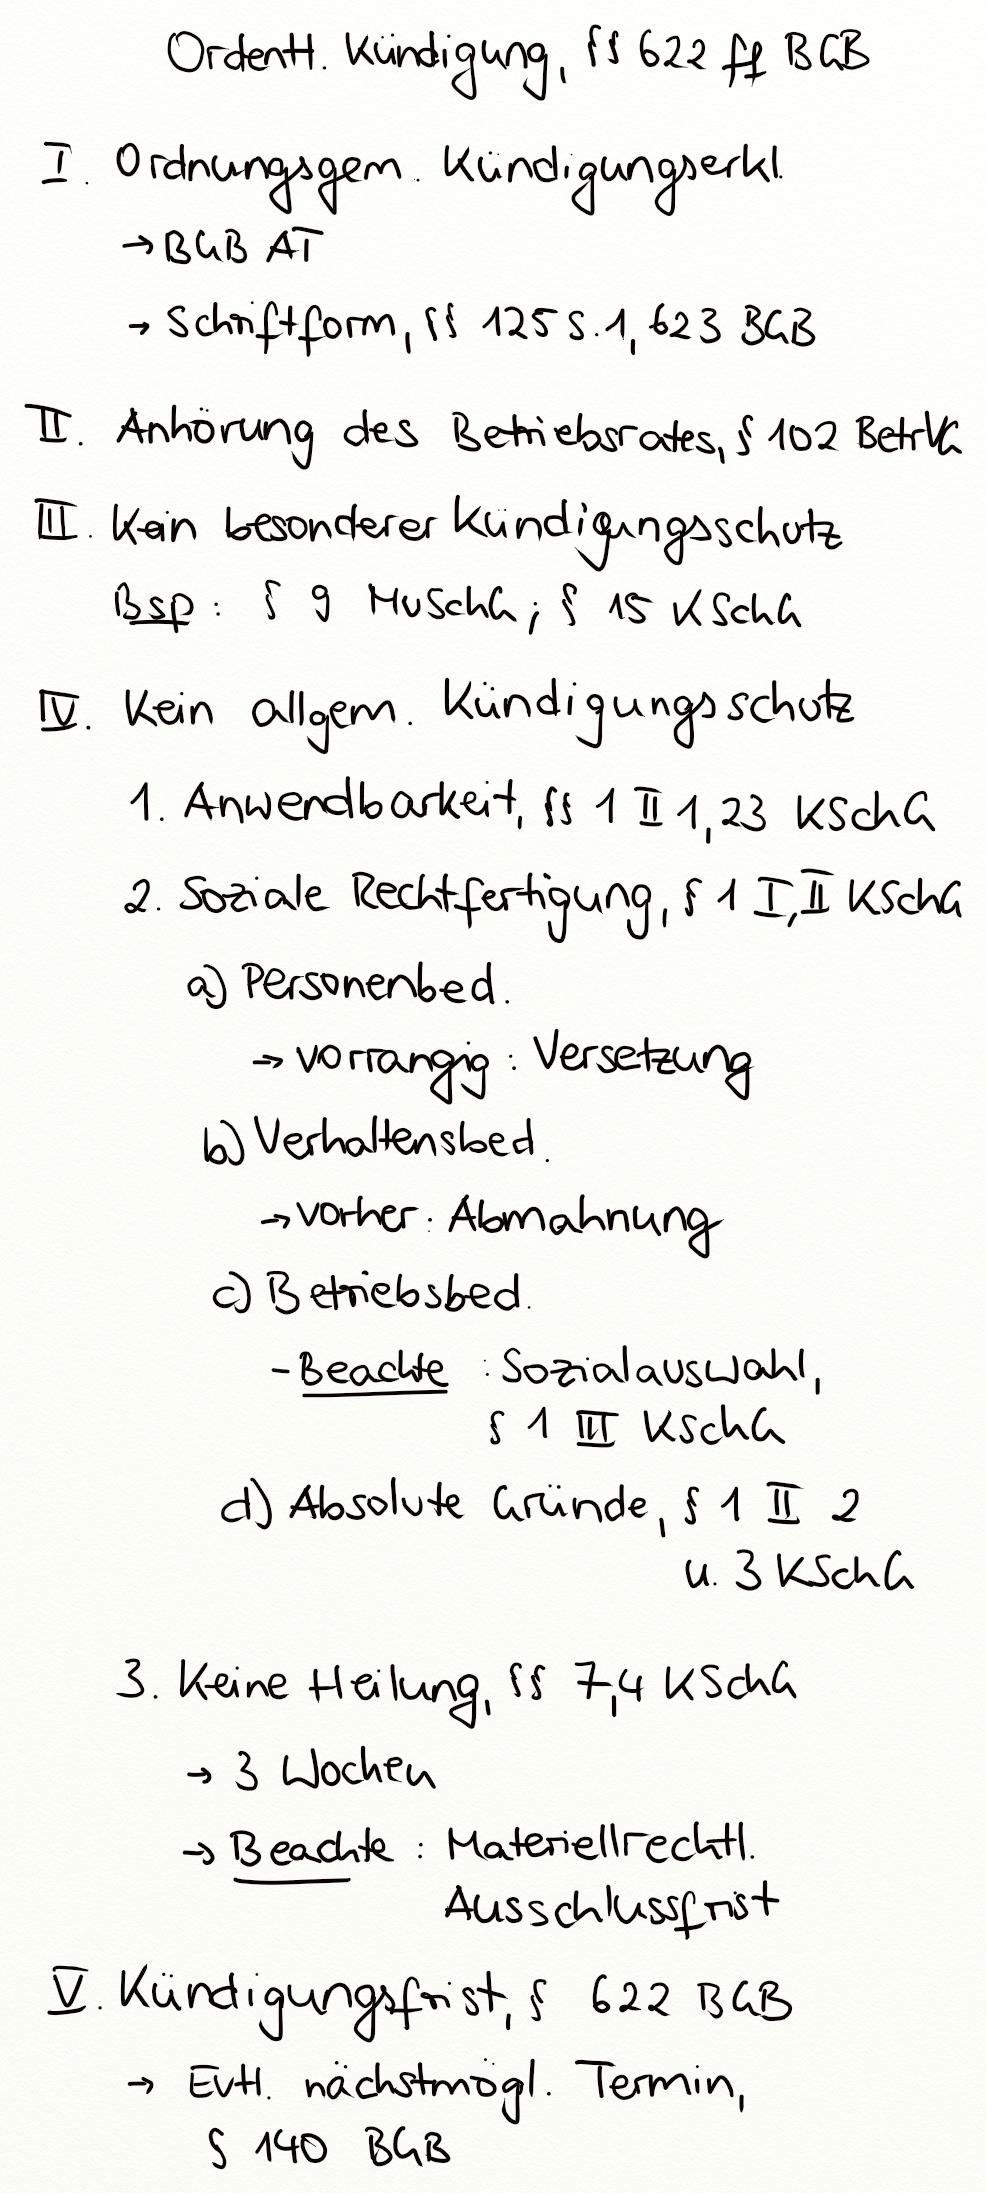 Ordentl. Kündigung, §§ 622 ff BGB
I. Ordnungsgem. Kündigungserkl.
→ BGB AT
→ Schriftform, §§ 125 S. 1, 623 BGB
II. Anhörung des Betriebsrates, § 102 BetrVG
III. Kein besonderer Kündigungsschutz
Bsp: § 9 MuSchG; § 15 KSchG
IV. Kein allgem. Kündigungsschutz
1. Anwendbarkeit, §§ 1 II 1, 23 KSchG
2. Soziale Rechtfertigung, § 1 I, II KSchG
a) Personenbed.
→ vorrangig: Versetzung
b) Verhaltensbed.
→ vorher: Abmahnung
c) Betriebsbed.
- Beachte: Sozialauswahl,
§ 1 III KSchG
d) Absolute Gründe, § 1 II 2
u. 3 KSchG
3. Keine Heilung, §§ 7, 4 KSchG
→ 3 Wochen
→ Beachte: Materiellrechtl.
Ausschlussfrist
V. Kündigungsfrist, § 622 BGB
→ Evtl. nächstmögl. Termin,
§ 140 BGB